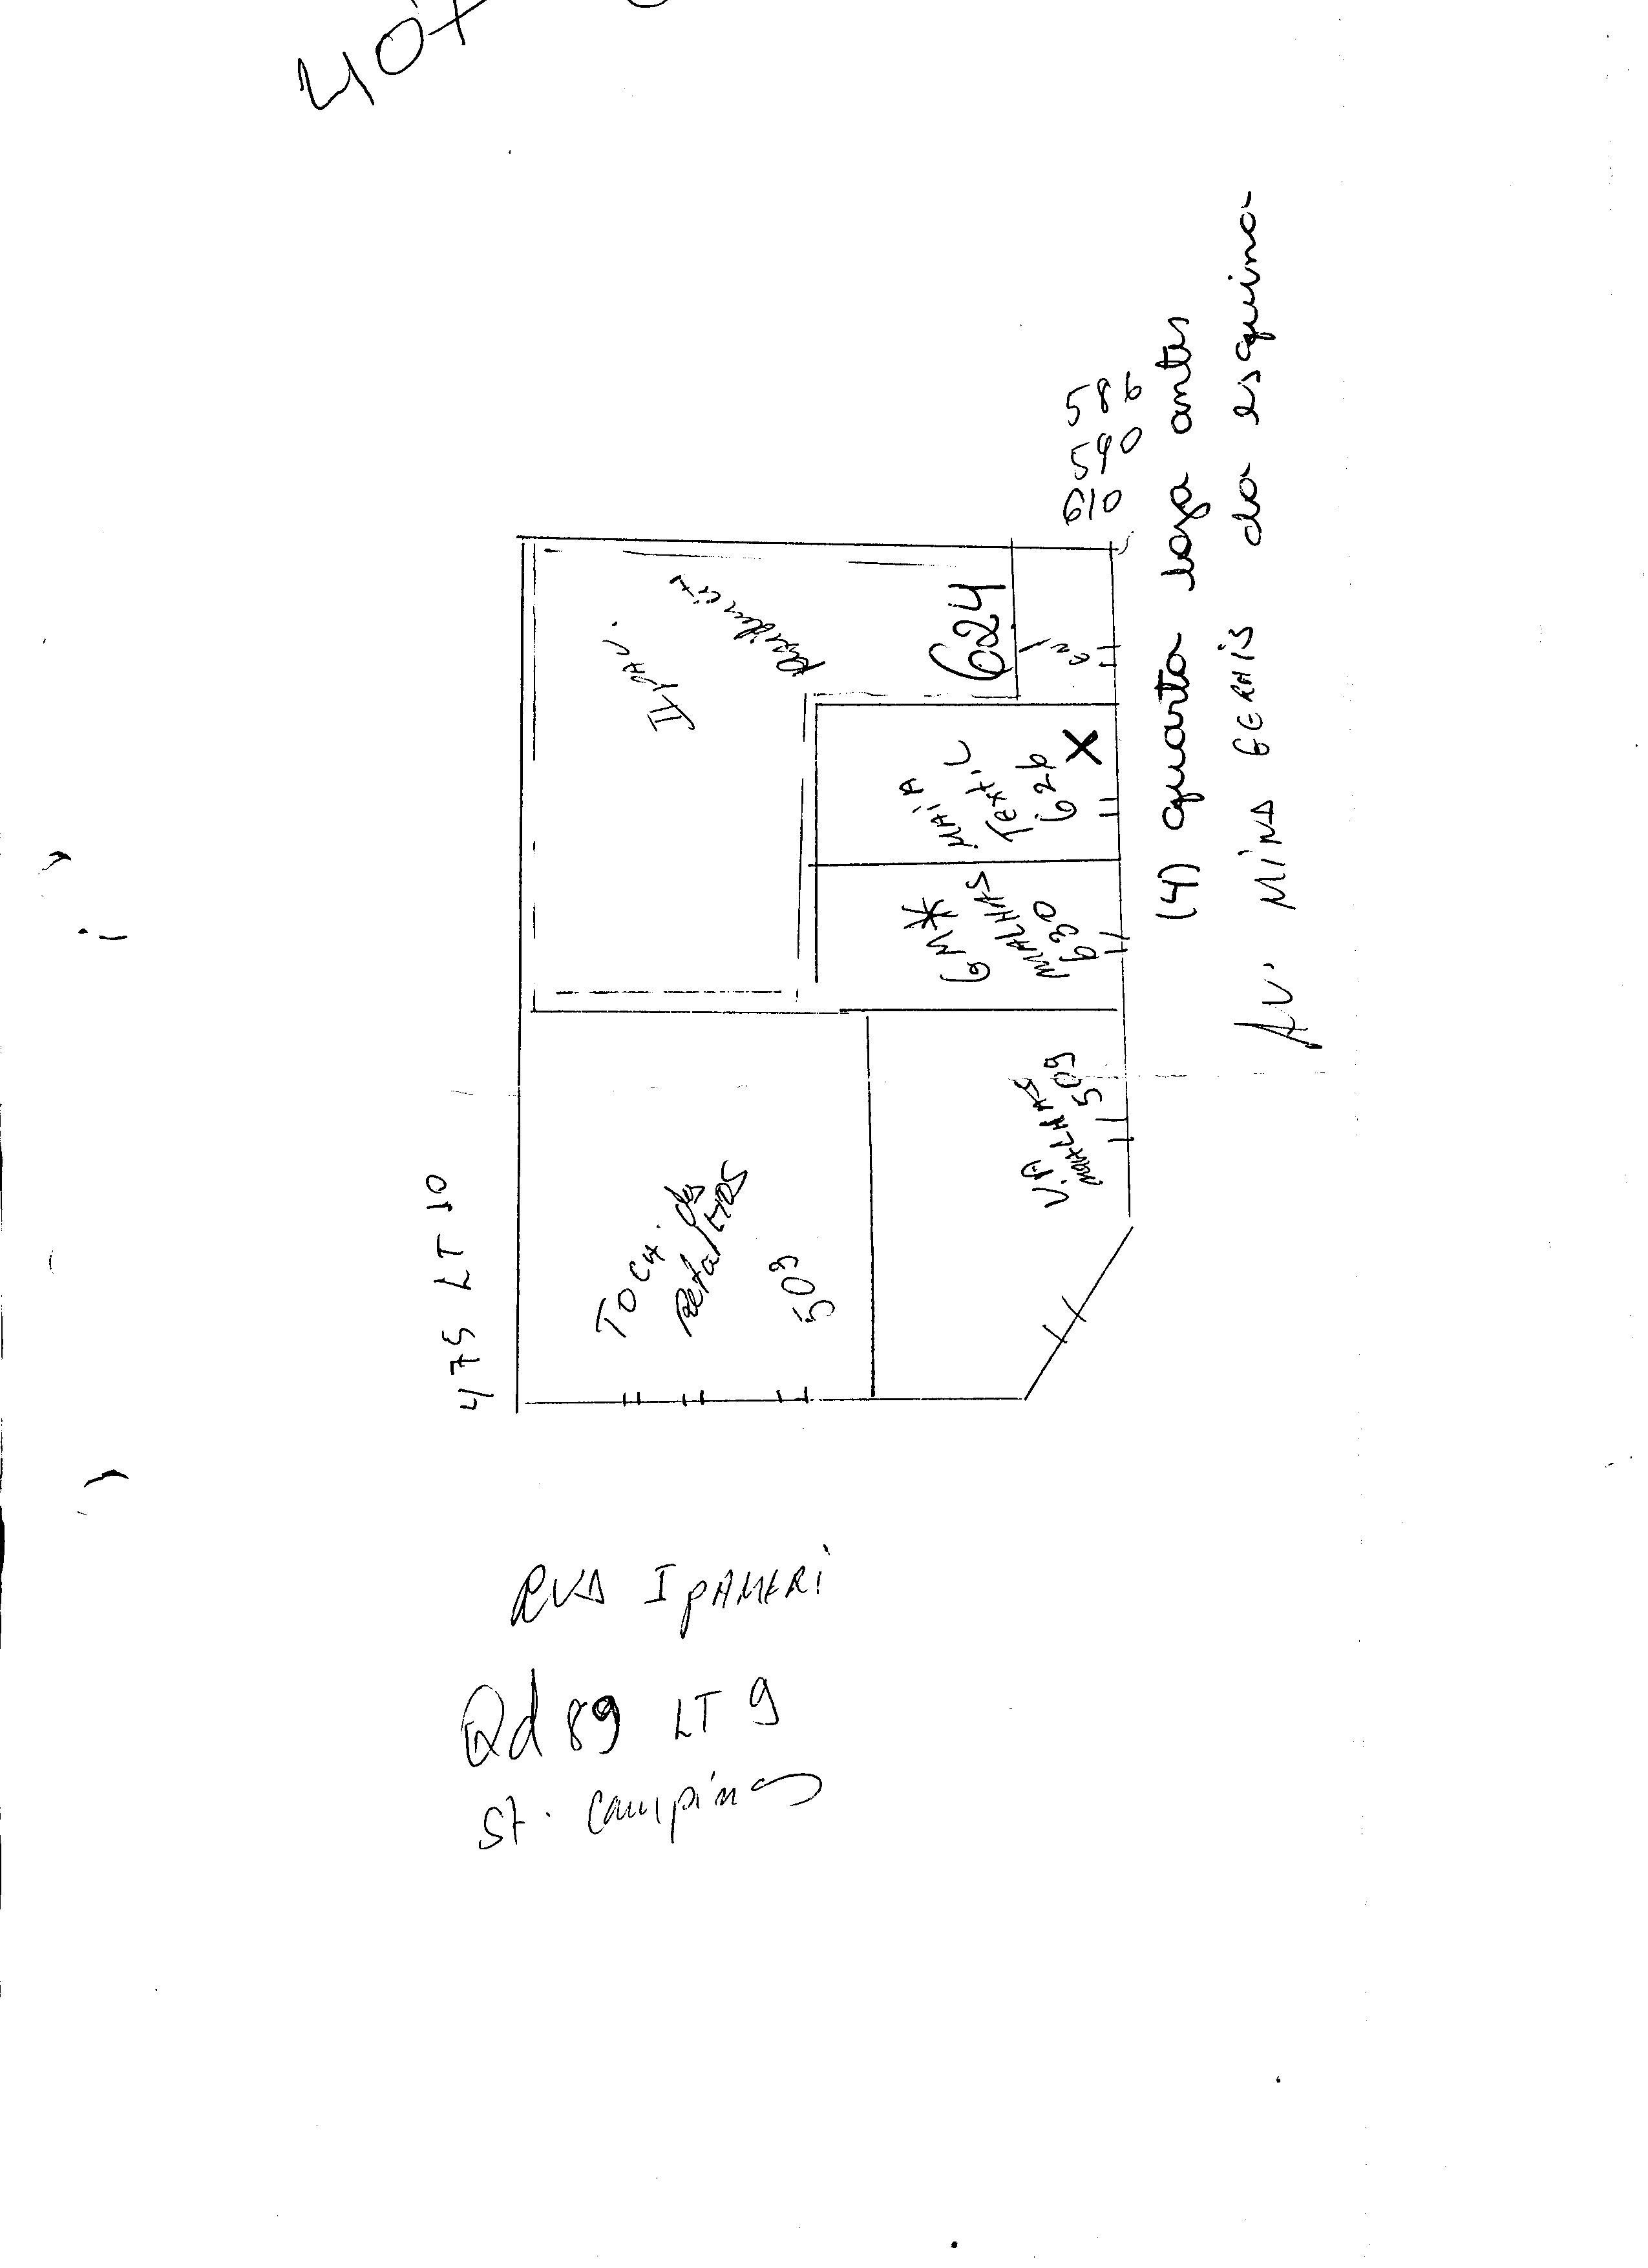 475 LT 10
Toca dos
Retalhos
509
V.A
MALHAS
509
GM*
MALHAS
630
MAIA
Textil
626
X
624
610
590
586
(4) quarta loga antes
da esquina
Av. MINAS GERAIS
RUA IPAMERI
Qd 89 LT 9
St. Campinas